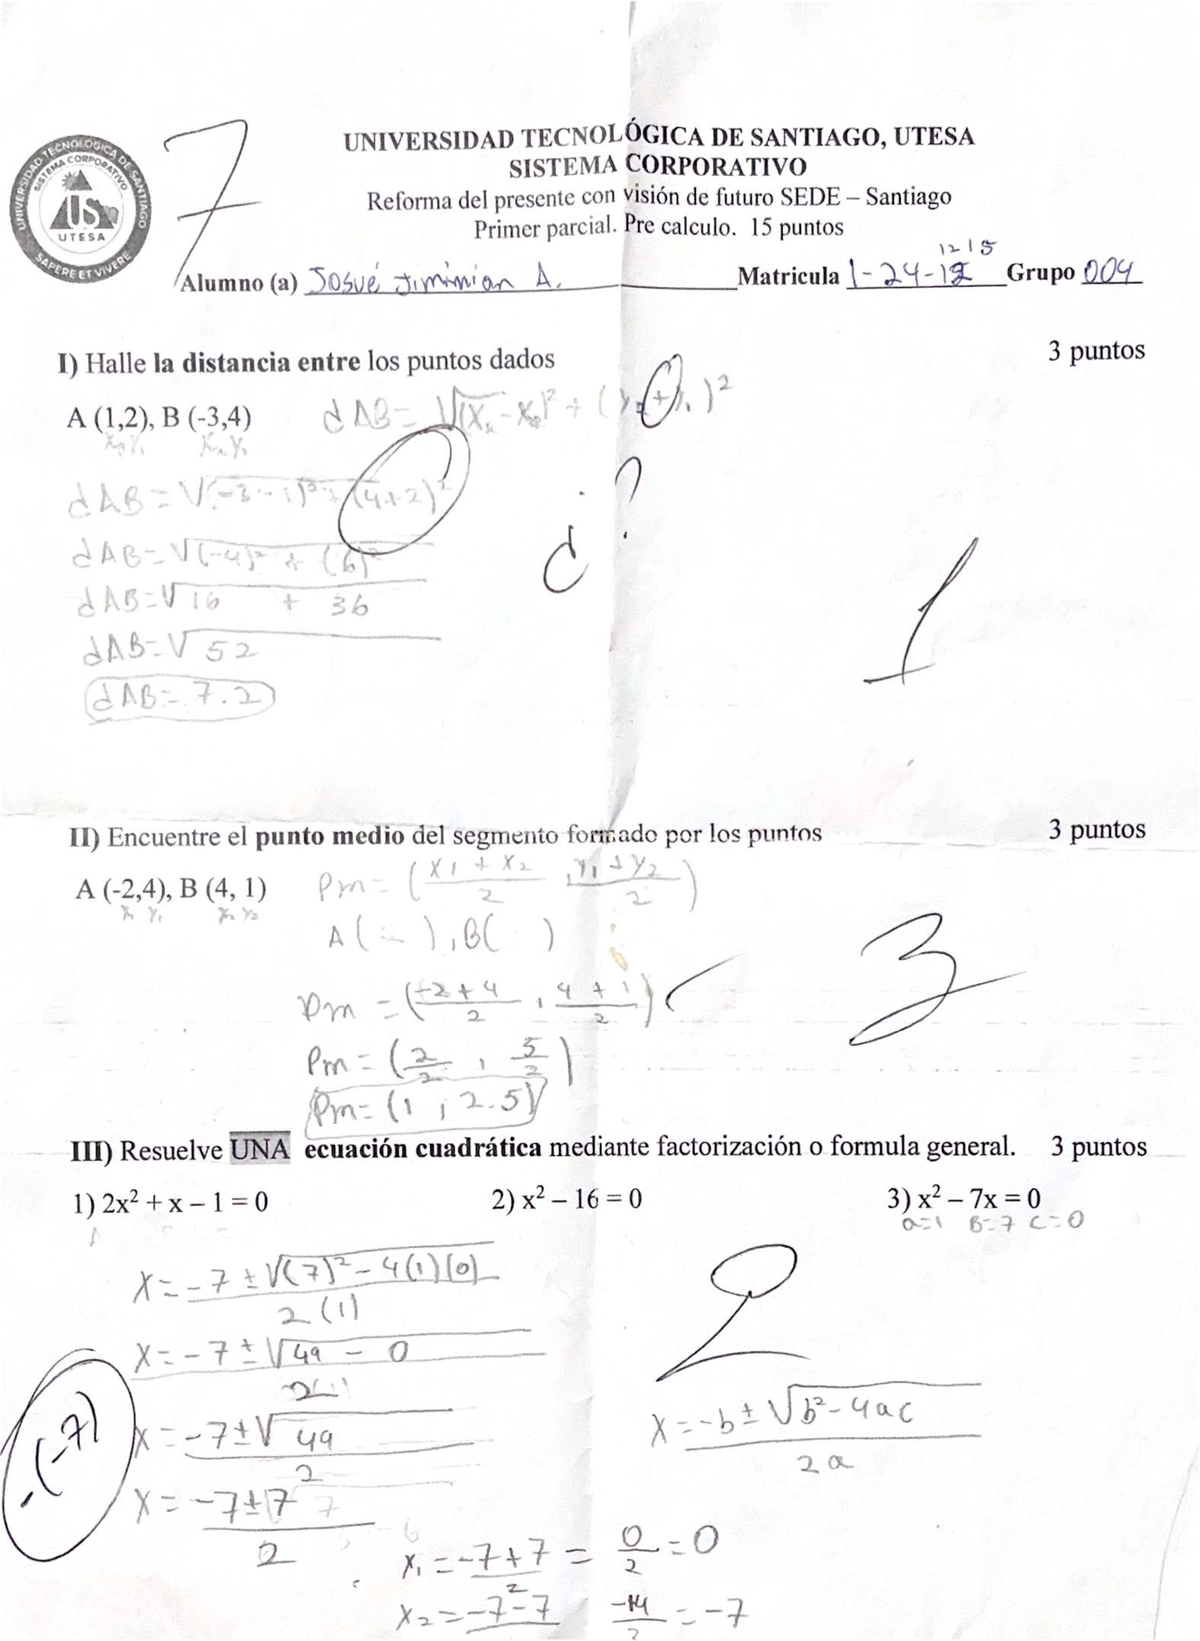 7
UNIVERSIDAD TECNOLÓGICA DE SANTIAGO, UTESA
SISTEMA CORPORATIVO
Reforma del presente con visión de futuro SEDE – Santiago
Primer parcial. Pre calculo. 15 puntos
UNIVERSIDAD TECNOLOGICA DE SANTIAGO
SISTEMA CORPORATIVO
UTESA
SAPERE ET VIVERE
1215
Alumno (a) Josué Jiminian A. Matricula 1-24-12 Grupo 004
I) Halle la distancia entre los puntos dados 3 puntos
A (1,2), B (-3,4) dAB = √(x₂-x₁)² + (y₂+y₁)²
dAB = √(-3-1)² + (4+2)²
¿?
dAB = √(-4)² + (6)²
dAB = √16 + 36
dAB = √52
1
dAB = 7.2
II) Encuentre el punto medio del segmento formado por los puntos 3 puntos
A (-2,4), B (4, 1) Pm = (x1 + x2 / 2, y1 + y2 / 2)
x₁ y₁ x₂ y₂
A( ), B( )
3
Pm = (-2+4 / 2, 4+1 / 2)
Pm = (2/2, 5/2)
Pm = (1, 2.5)
III) Resuelve UNA ecuación cuadrática mediante factorización o formula general. 3 puntos
1) 2x² + x – 1 = 0 2) x² – 16 = 0 3) x² – 7x = 0
a=1 B=7 C=0
x = -7 ± √(7)² - 4(1)(0) / 2(1)
2
x = -7 ± √49 - 0 / 2(1)
x = -b ± √b² - 4ac / 2a
-(-7)
x = -7 ± √49 / 2
x = -7 ± 7 / 2
x₁ = -7+7 / 2 = 0/2 = 0
x₂ = -7-7 -14/2 = -7